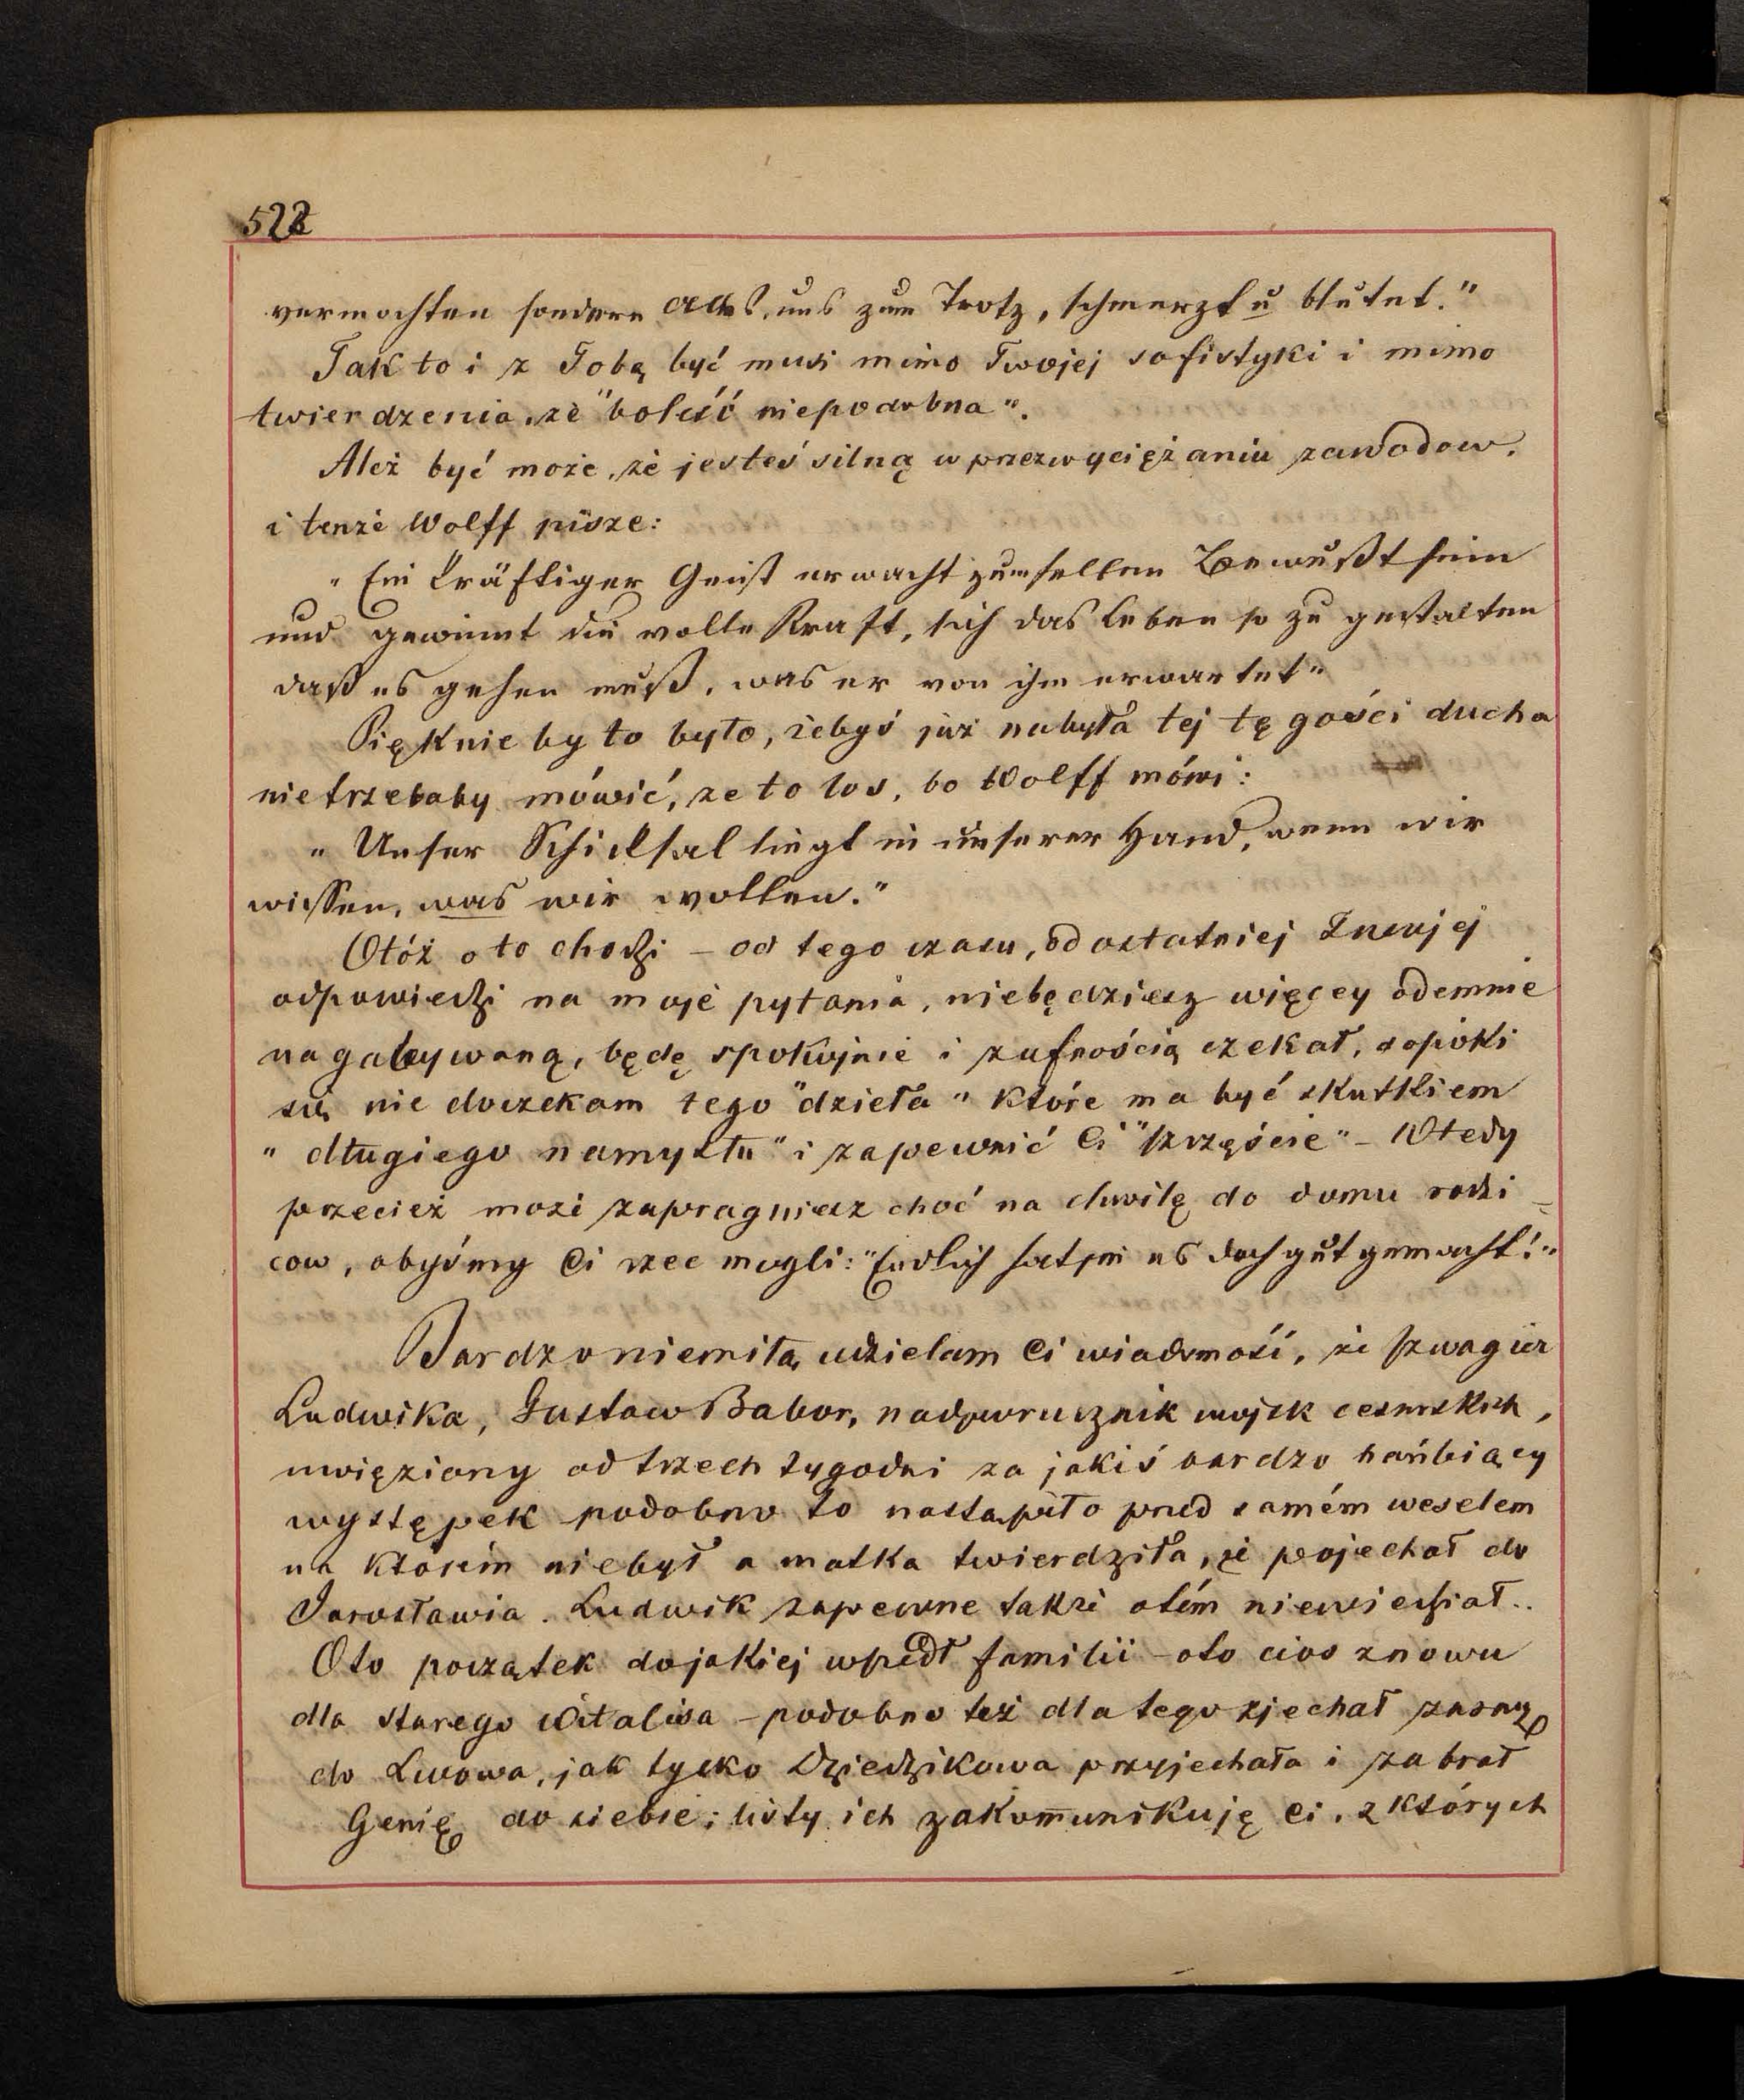 522
vermochten sondern das, uns zum Trotz, schmerzt u blutet."
Tak to i z Tobą być musi mimo Twojej sofistyki i mimo
twierdzenia, że "boleść niepodobna".
Ależ być może, że jesteś silną w przezwyciężaniu zawodow.
i tenże Wolff pisze:
"Ein kräftiger Geist erwacht zum hellen Bewußtsein
und gewinnt die volle Kraft, sich das Leben so zu gestalten
daß es geben muß, was er von ihm erwartet"
Pięknie by to było, żebyś już nabyła tej tęgości ducha
nietrzebaby mówić, że to los, bo Wolff mówi:
"Unser Schicksal liegt in unserer Hand, wenn wir
wissen, was wir wollen."
Otóż o to chodzi – od tego czasu, od ostatniej Twojej
odpowiedzi na moje pytania, niebędziesz więcey odemnie
nagabywaną, będę spokojnie i zufnością czekał, dopóki
się nie doczekam tego "dzieła" które ma być skutkiem
"długiego namysłu" i zapewnić Ci "szczęście" – Wtedy
przecież może zapragniesz choć na chwilę do domu rodzi-
cow, abyśmy Ci rzec mogli: "Endlich hat sie es doch gut gemacht!"
Bardzo niemiłą udzielam Ci wiadomość, że szwagier
Ludwika, Gustaw Babor, nadporucznik wojsk cesarskich,
uwięziony od trzech tygodni za jakiś bardzo hańbiący
występek podobno to nastąpiło przed samém weselem
na którém niebył a matka twierdziła, że pojechał do
Jarosławia. Ludwik zapewne także otém niewiedział..
Oto początek do jakiej wpadł familii – oto cios znowu
dla starego Witalisa – podobno też dla tego zjechał
do Lwowa, jak tylko Dziedzikowa przyjechała i zabrał
Genię do siebie; listy ich zakomunikuję Ci, z których